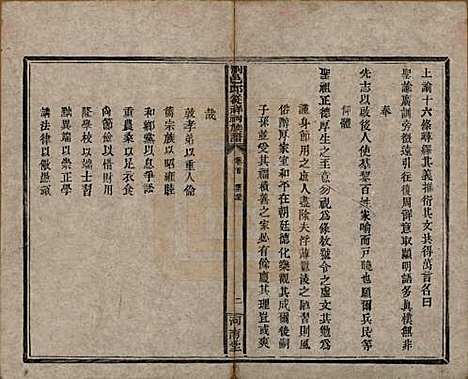 上諭十六條尋繹其義推衍其文共得萬言名曰
聖諭廣訓旁徵遠引往復周詳意取顯明語多質樸無非
奉
先志以啟後人使羣黎百姓家喻而戶曉也願爾兵民等
仰體
聖祖正德厚生之至意勿視為條教號令之虛文共勉為
謹身節用之庶人盡除夫浮薄囂凌之陋習則風
俗醇厚家室和平在朝廷德化樂觀其成爾後嗣
子孫並受其福積善之家必有餘慶其理豈或爽
哉
敦孝弟以重人倫
篤宗族以昭雍睦
和鄉黨以息爭訟
重農桑以足衣食
尚節儉以惜財用
隆學校以端士習
黜異端以崇正學
講法律以儆愚頑
瀏邑邱萃祥祠族譜
卷首
二
河南堂